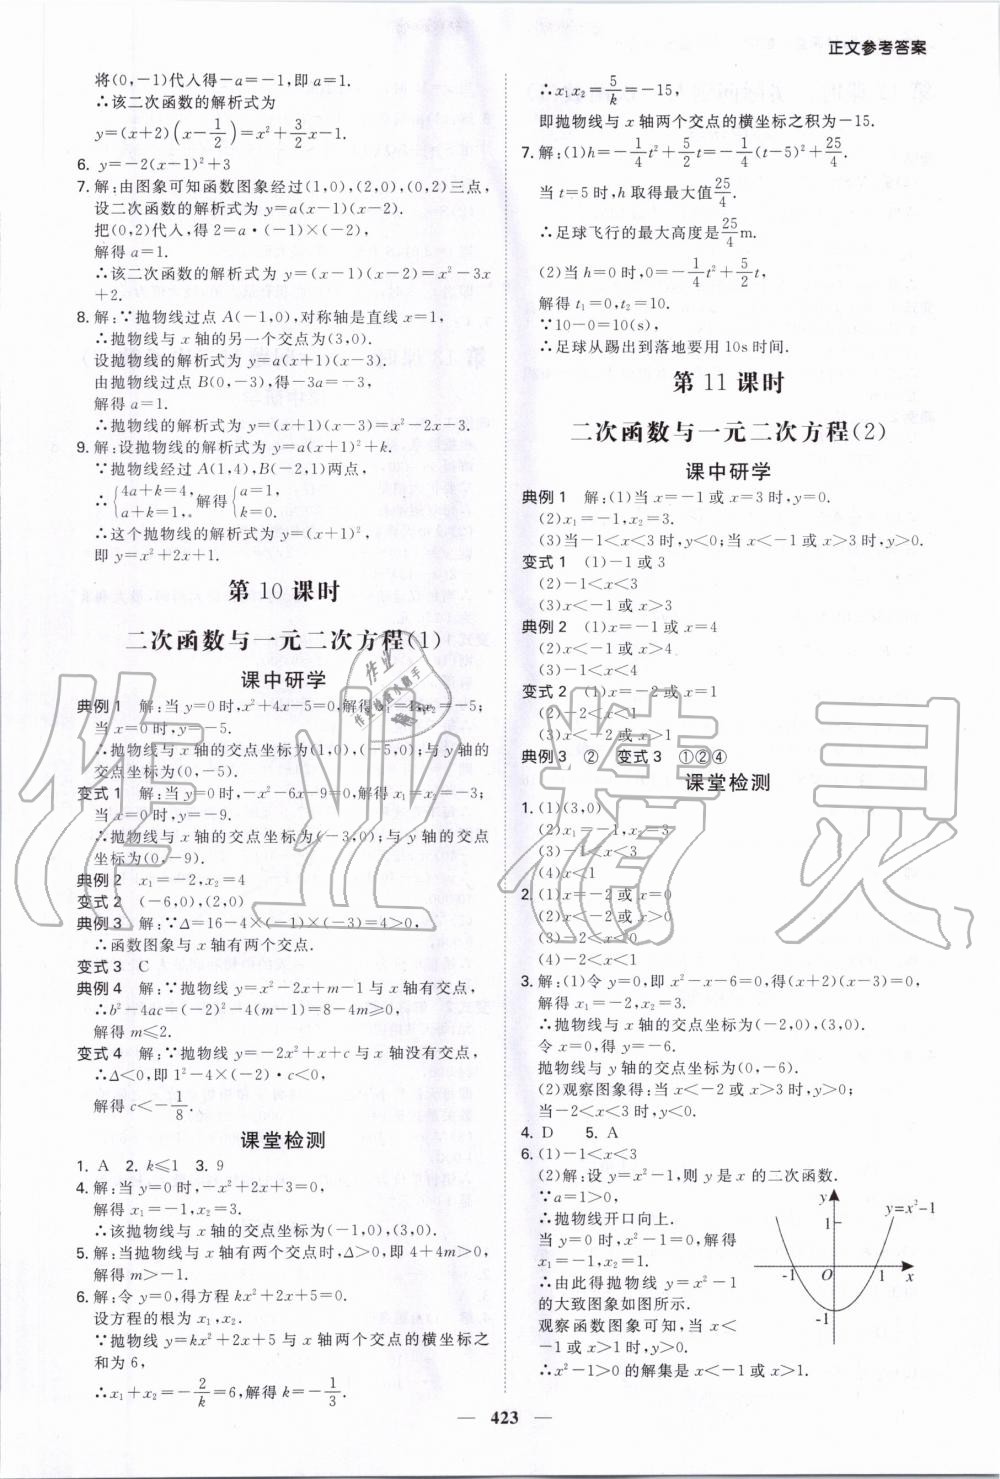 正文参考答案
将(0,-1)代入得-a=-1,即 a=1.
∴该二次函数的解析式为
y=(x+2)(x-1/2)=x²+3/2x-1.
6. y=-2(x-1)²+3
7. 解:由图象可知函数图象经过(1,0),(2,0),(0,2)三点,
设二次函数的解析式为 y=a(x-1)(x-2).
把(0,2)代入,得 2=a·(-1)×(-2),
解得 a=1.
∴该二次函数的解析式为 y=(x-1)(x-2)=x²-3x
+2.
8. 解:∵抛物线过点 A(-1,0),对称轴是直线 x=1,
∴抛物线与 x 轴的另一个交点为(3,0).
设抛物线的解析式为 y=a(x+1)(x-3).
由抛物线过点 B(0,-3),得-3a=-3,
解得 a=1.
∴抛物线的解析式为 y=(x+1)(x-3)=x²-2x-3.
9. 解:设抛物线的解析式为 y=a(x+1)²+k.
∵抛物线经过 A(1,4),B(-2,1)两点,
∴{4a+k=4, a+k=1, 解得{a=1, k=0.
∴这个抛物线的解析式为 y=(x+1)²,
即 y=x²+2x+1.
第 10 课时
二次函数与一元二次方程(1)
课中研学
典例 1 解:当 y=0时,x²+4x-5=0,解得x₁=1,x₂=-5;
当 x=0时,y=-5.
∴抛物线与 x 轴的交点坐标为(1,0),(-5,0);与 y 轴的
交点坐标为(0,-5).
变式 1 解:当 y=0时,-x²-6x-9=0,解得 x₁=x₂=-3;
当 x=0时,y=-9.
∴抛物线与 x 轴的交点坐标为(-3,0);与 y 轴的交点
坐标为(0,-9).
典例 2 x₁=-2,x₂=4
变式 2 (-6,0),(2,0)
典例 3 解:∵Δ=16-4×(-1)×(-3)=4>0,
∴函数图象与 x 轴有两个交点.
变式 3 C
典例 4 解:∵抛物线 y=x²-2x+m-1 与 x 轴有交点,
∴b²-4ac=(-2)²-4(m-1)=8-4m≥0,
解得 m≤2.
变式 4 解:∵抛物线 y=-2x²+x+c 与 x 轴没有交点,
∴Δ<0,即 1²-4×(-2)·c<0,
解得 c<-1/8.
课堂检测
1. A 2. k≤1 3. 9
4. 解:当 y=0时,-x²+2x+3=0,
解得 x₁=-1,x₂=3.
∴该抛物线与 x 轴的交点坐标为(-1,0),(3,0).
5. 解:当抛物线与 x 轴有两个交点时,Δ>0,即 4+4m>0,
解得 m>-1.
6. 解:令 y=0,得方程 kx²+2x+5=0.
设方程的根为 x₁,x₂.
∵抛物线 y=kx²+2x+5 与 x 轴两个交点的横坐标之
和为 6,
∴x₁+x₂=-2/k=6,解得 k=-1/3.
∴x₁x₂=5/k=-15,
即抛物线与 x 轴两个交点的横坐标之积为-15.
7. 解:(1)h=-1/4t²+5/2t=-1/4(t-5)²+25/4.
当 t=5 时,h 取得最大值25/4.
∴足球飞行的最大高度是25/4m.
(2)当 h=0 时,0=-1/4t²+5/2t,
解得 t₁=0,t₂=10.
∵10-0=10(s),
∴足球从踢出到落地要用 10s 时间.
第 11 课时
二次函数与一元二次方程(2)
课中研学
典例 1 解:(1)当 x=-1 或 x=3 时,y=0.
(2)x₁=-1,x₂=3.
(3)当-1<x<3 时,y<0;当 x<-1 或 x>3 时,y>0.
变式 1 (1)-1 或 3
(2)-1<x<3
(3)x<-1 或 x>3
典例 2 (1)x=-1 或 x=4
(2)x<-1 或 x>4
(3)-1<x<4
变式 2 (1)x=-2 或 x=1
(2)-2<x<1
(3)x<-2 或 x>1
典例 3 ② 变式 3 ①②④
课堂检测
1. (1)(3,0)
(2)x₁=-1,x₂=3
(3)-1<x<3
(4)x<1
2. (1)x=-2 或 x=0
(2)x<-2 或 x>0
(3)-2<x<0
(4)-2<x<1
3. 解:(1)令 y=0,即 x²-x-6=0,得(x+2)(x-3)=0,
解得 x₁=-2,x₂=3.
∴抛物线与 x 轴的交点坐标为(-2,0),(3,0).
令 x=0,得 y=-6.
抛物线与 y 轴的交点坐标为(0,-6).
(2)观察图象得:当 x<-2 或 x>3 时,y>0;
当-2<x<3 时,y<0.
4. D 5. A
6. (1)-1<x<3
(2)解:设 y=x²-1,则 y 是 x 的二次函数.
∵a=1>0,
∴抛物线开口向上.
当 y=0 时,x²-1=0,解得
x₁=-1,x₂=1.
∴由此得抛物线 y=x²-1
的大致图象如图所示.
观察函数图象可知,当 x<
-1 或 x>1 时,y>0.
∴x²-1>0 的解集是 x<-1 或 x>1.
y
y=x²-1
1
-1 O 1 x
-1
423
作业精灵